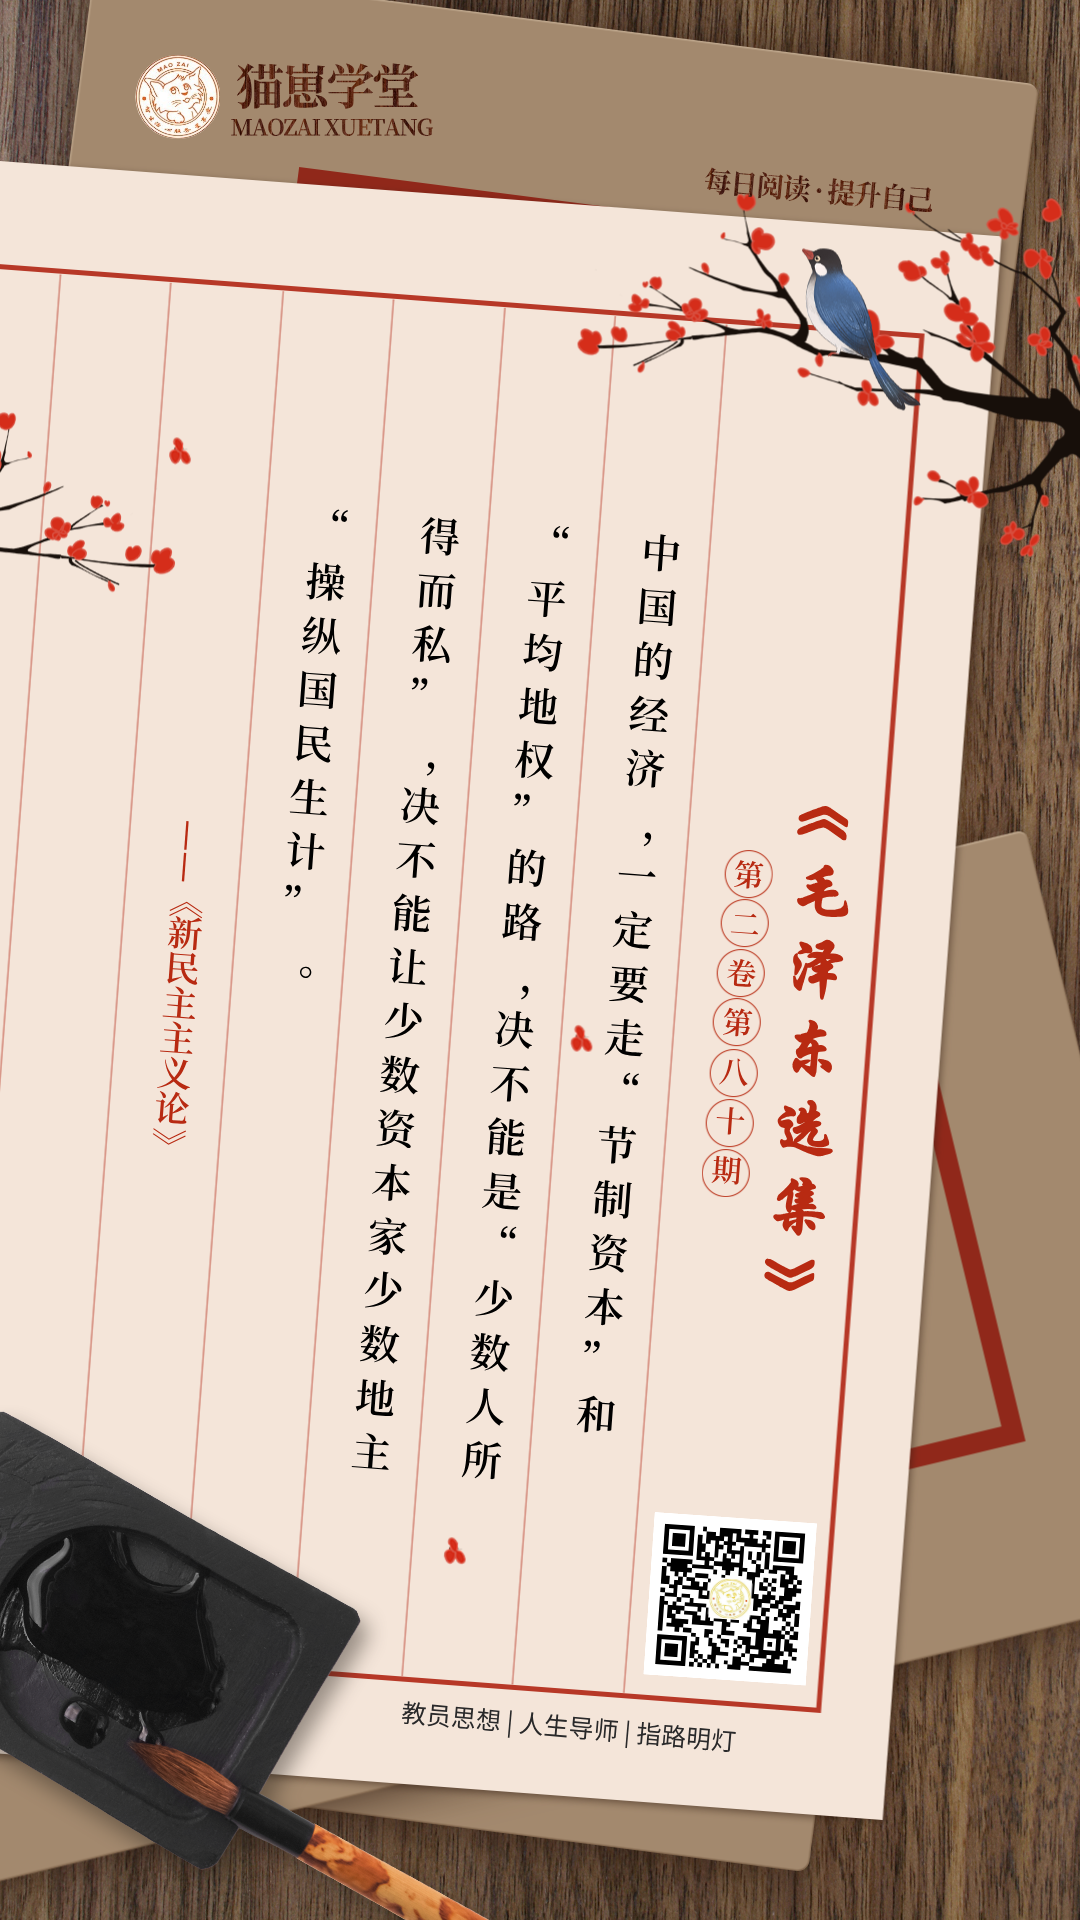 猫崽学堂
MAOZAI XUETANG
MAO ZAI
每日阅读·提升自己
《毛泽东选集》
第二卷第八十期
中国的经济,一定要走“节制资本”和
“平均地权”的路,决不能是“少数人所
得而私”,决不能让少数资本家少数地主
“操纵国民生计”。
——《新民主主义论》
教员思想|人生导师|指路明灯